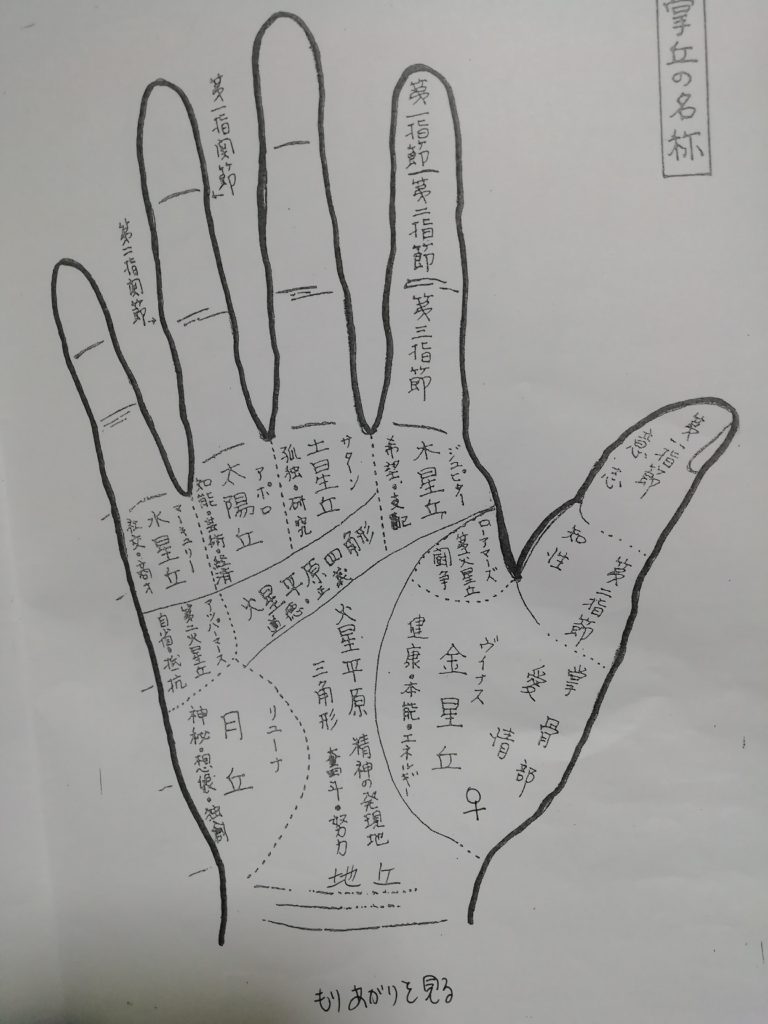 掌丘の名称
第一指関節
第二指関節
第一指節
第二指節
第三指節
ジュピター
木星丘
希望・支配
サターン
土星丘
孤独・研究
アポロ
太陽丘
知能・芸術・経済
マーキュリー
水星丘
社交・商才
火星平原四角形
道徳・正義
ローアマーズ
第一火星丘
闘争
アッパーマース
第二火星丘
自省・抵抗
火星平原
三角形
精神の発現地
奮斗・努力
ヴィナス
金星丘
健康・本能・エネルギー
♀
リューナ
月丘
神秘・想像・独創
地丘
第一指節
意志
第二指節
知性
掌骨部
愛情
もりあがりを見る